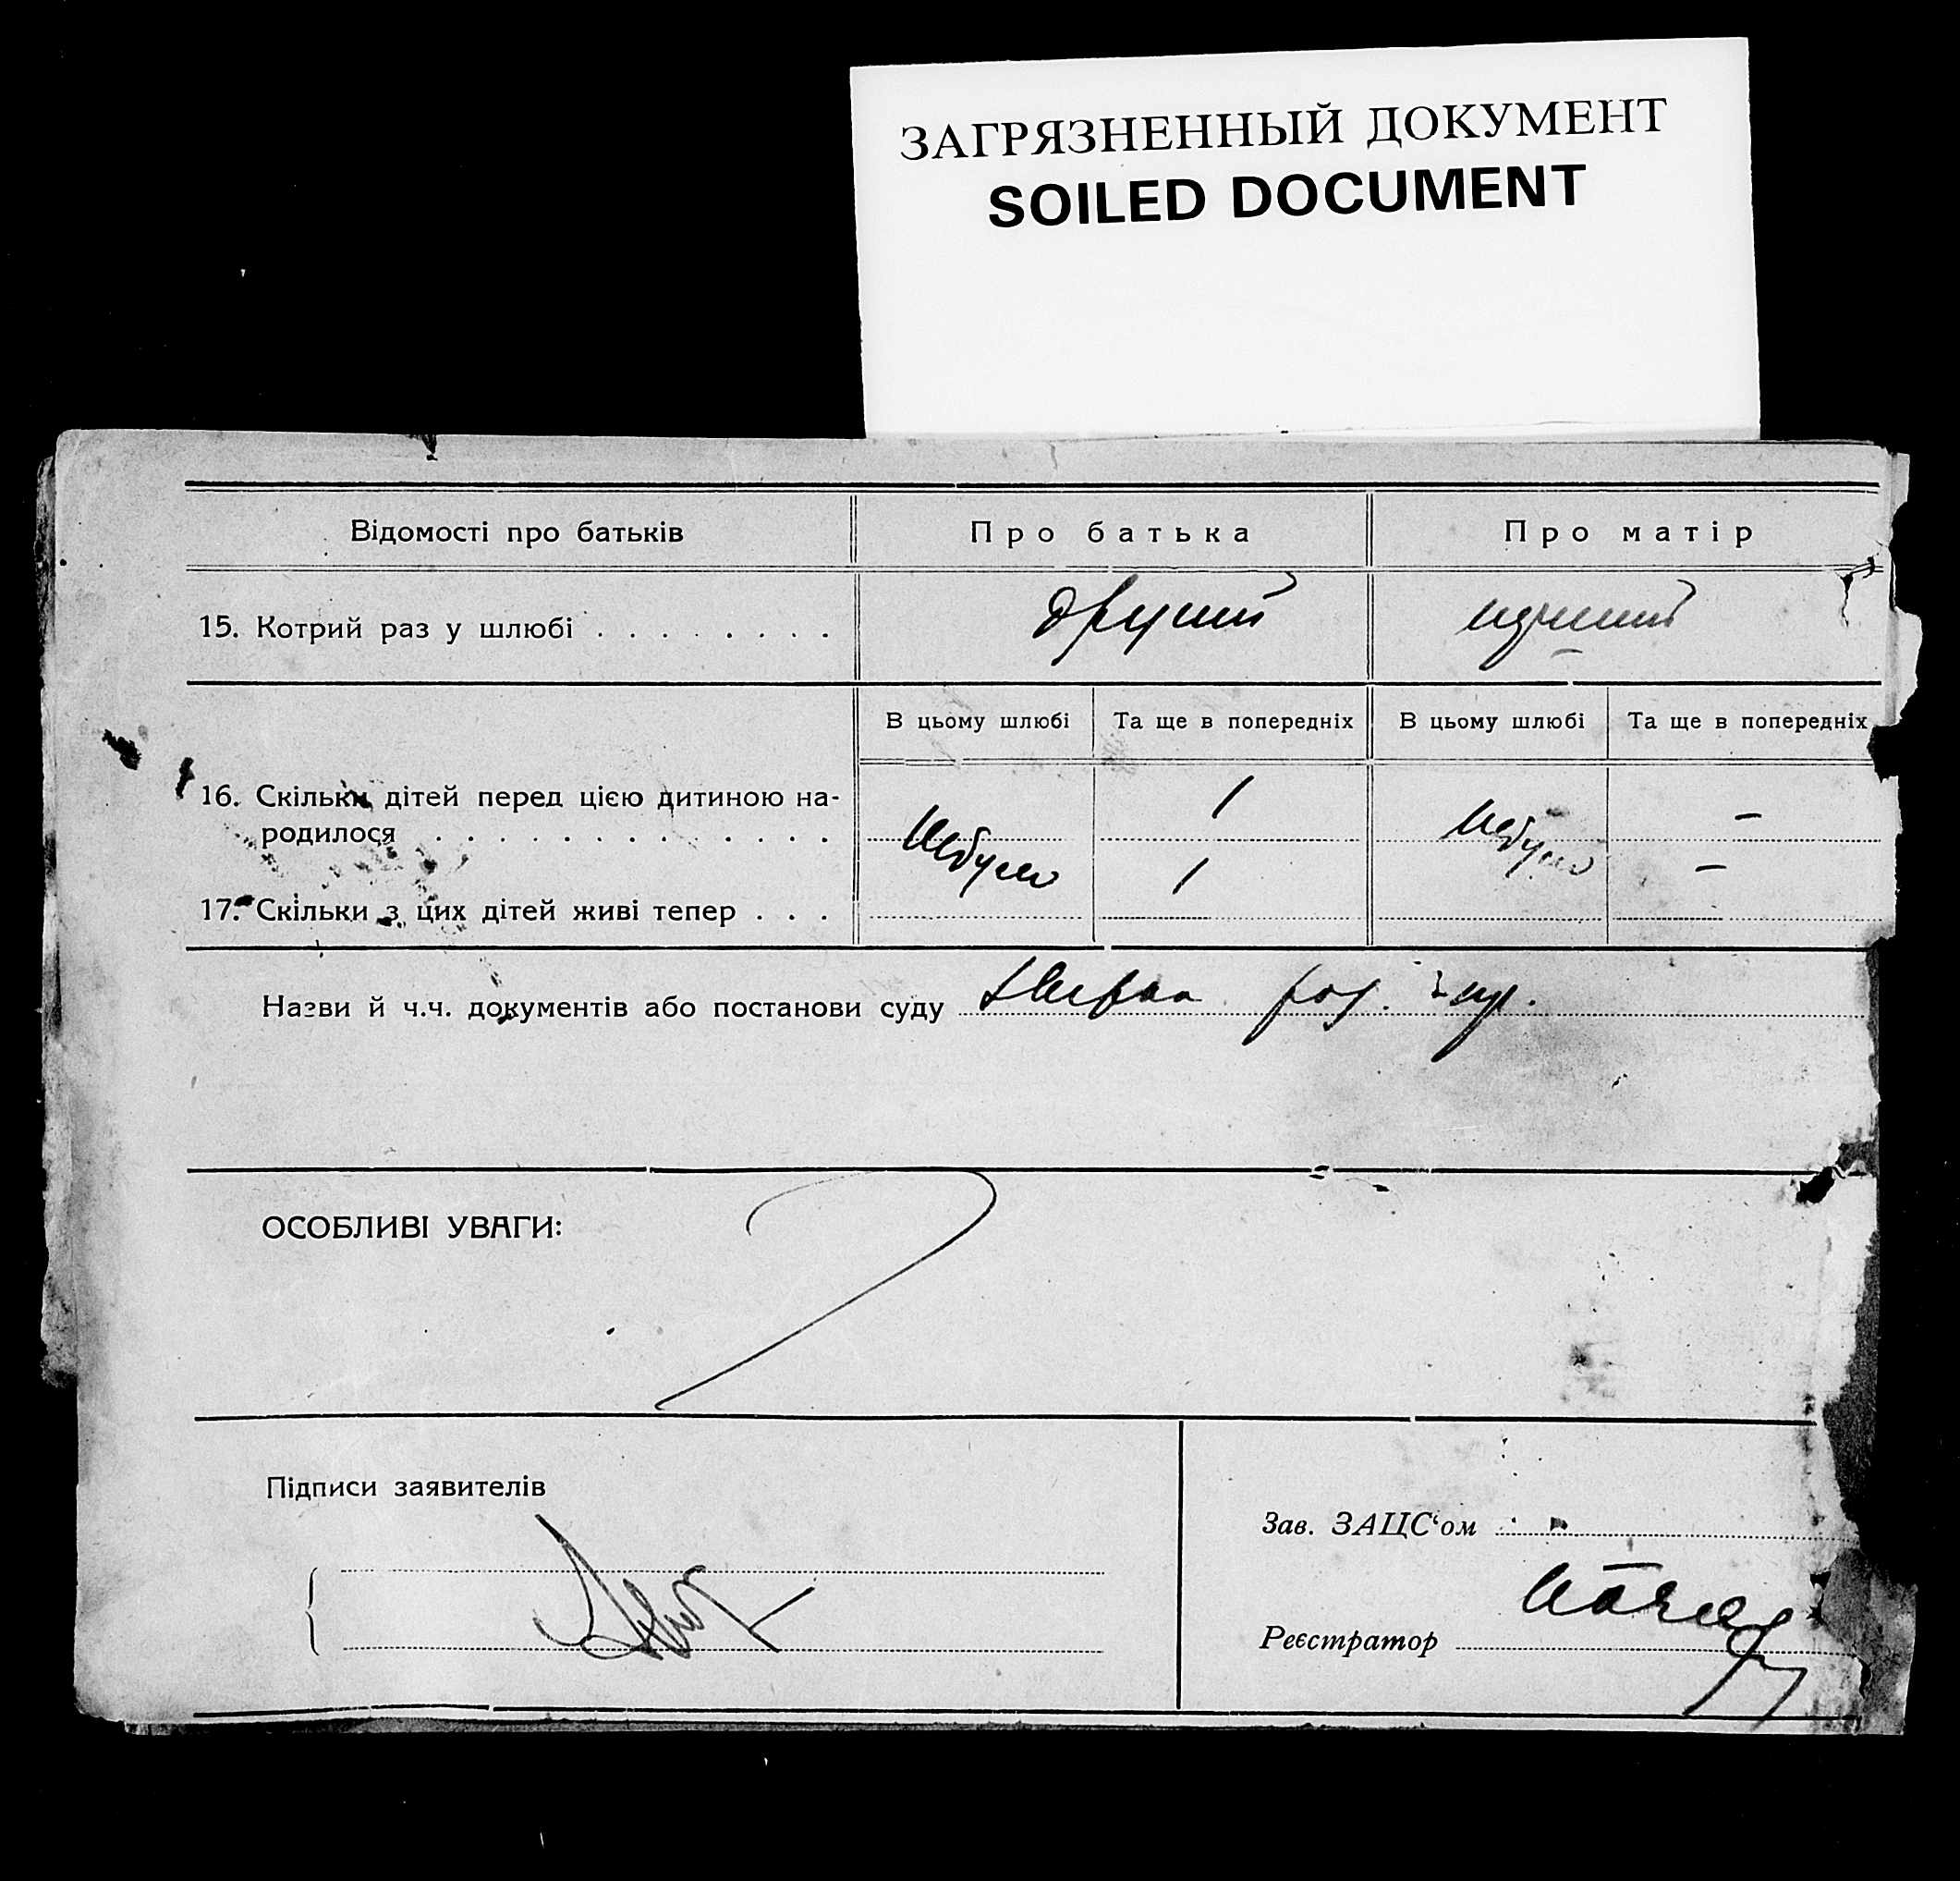 ЗАГРЯЗНЕННЫЙ ДОКУМЕНТ
SOILED DOCUMENT
Відомості про батьків Про батька Про матір
15. Котрий раз у шлюбі . . . . . . . . другий перший
В цьому шлюбі Та ще в попередніх В цьому шлюбі Та ще в попередніх
16. Скільки дітей перед цією дитиною на-
родилося . . . . . . . . . . . . . небуло 1 небуло —
17. Скільки з цих дітей живі тепер . . . 1 —
Назви й ч.ч. документів або постанови суду
ОСОБЛИВІ УВАГИ:
Підписи заявителів
Зав. ЗАЦС‘ом
Реєстратор